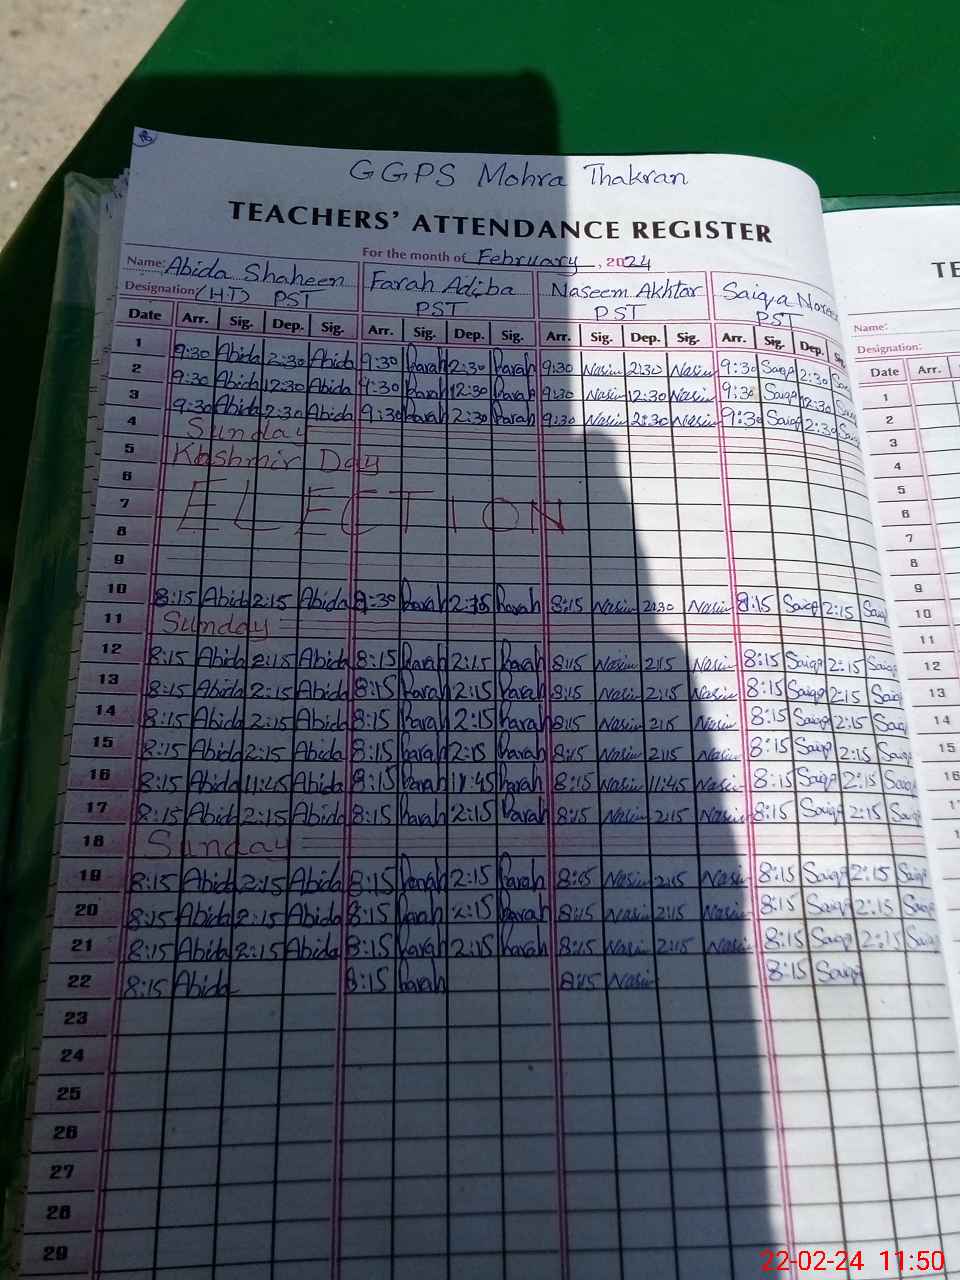 GGPS Mohra Thakran
TEACHERS' ATTENDANCE REGISTER
For the month of February, 2024
Name: Abida Shaheen Farah Adiba Naseem Akhtar Saiqa
Designation: (HT) PST PST PST PST
Date Arr. Sig. Dep. Sig. Arr. Sig. Dep. Sig. Arr. Sig. Dep. Sig. Arr. Sig. Dep. Sig.
1 9:30 Abida 2:30 Abida 9:30 Farah 2:30 Farah 9:30 Nasim 2:30 Nasim 9:30 Saiqa 2:30
2 9:30 Abida 12:30 Abida 9:30 Farah 12:30 Farah 9:30 Nasim 12:30 Nasim 9:30 Saiqa 12:30
3 9:30 Abida 2:30 Abida 9:30 Farah 2:30 Farah 9:30 Nasim 2:30 Nasim 9:30 Saiqa 2:30
4 Sunday
5 Kashmir Day
6
7 ELECTION
8
9
10 8:15 Abida 2:15 Abida Farah Farah 8:15 Nasim 2:30 Nasim 8:15 Saiqa 2:15
11 Sunday
12 8:15 Abida 2:15 Abida 8:15 Farah 2:15 Farah 8:15 Nasim 2:15 Nasim 8:15 Saiqa 2:15
13 8:15 Abida 2:15 Abida 8:15 Farah 2:15 Farah 8:15 Nasim 2:15 Nasim 8:15 Saiqa 2:15
14 8:15 Abida 2:15 Abida 8:15 Farah 2:15 Farah 8:15 Nasim 2:15 Nasim 8:15 Saiqa 2:15
15 8:15 Abida 2:15 Abida 8:15 Farah 2:15 Farah 8:15 Nasim 2:15 Nasim 8:15 Saiqa 2:15
16 8:15 Abida 11:45 Abida 8:15 Farah 11:45 Farah 8:15 Nasim 11:45 Nasim 8:15 Saiqa 2:15
17 8:15 Abida 2:15 Abida 8:15 Farah 2:15 Farah 8:15 Nasim 2:15 Nasim 8:15 Saiqa 2:15
18 Sunday
19 8:15 Abida 2:15 Abida 8:15 Farah 2:15 Farah 8:15 Nasim 2:15 Nasim 8:15 Saiqa 2:15
20 8:15 Abida 2:15 Abida 8:15 Farah 2:15 Farah 8:15 Nasim 2:15 Nasim 8:15 Saiqa 2:15
21 8:15 Abida 2:15 Abida 8:15 Farah 2:15 Farah 8:15 Nasim 2:15 Nasim 8:15 Saiqa 2:15
22 8:15 Abida 8:15 Farah 8:15 Nasim 8:15 Saiqa
23
24
25
26
27
28
29
TE
Name:
Designation:
Date Arr.
1
2
3
4
5
6
7
8
9
10
11
12
13
14
15
16
22-02-24 11:50